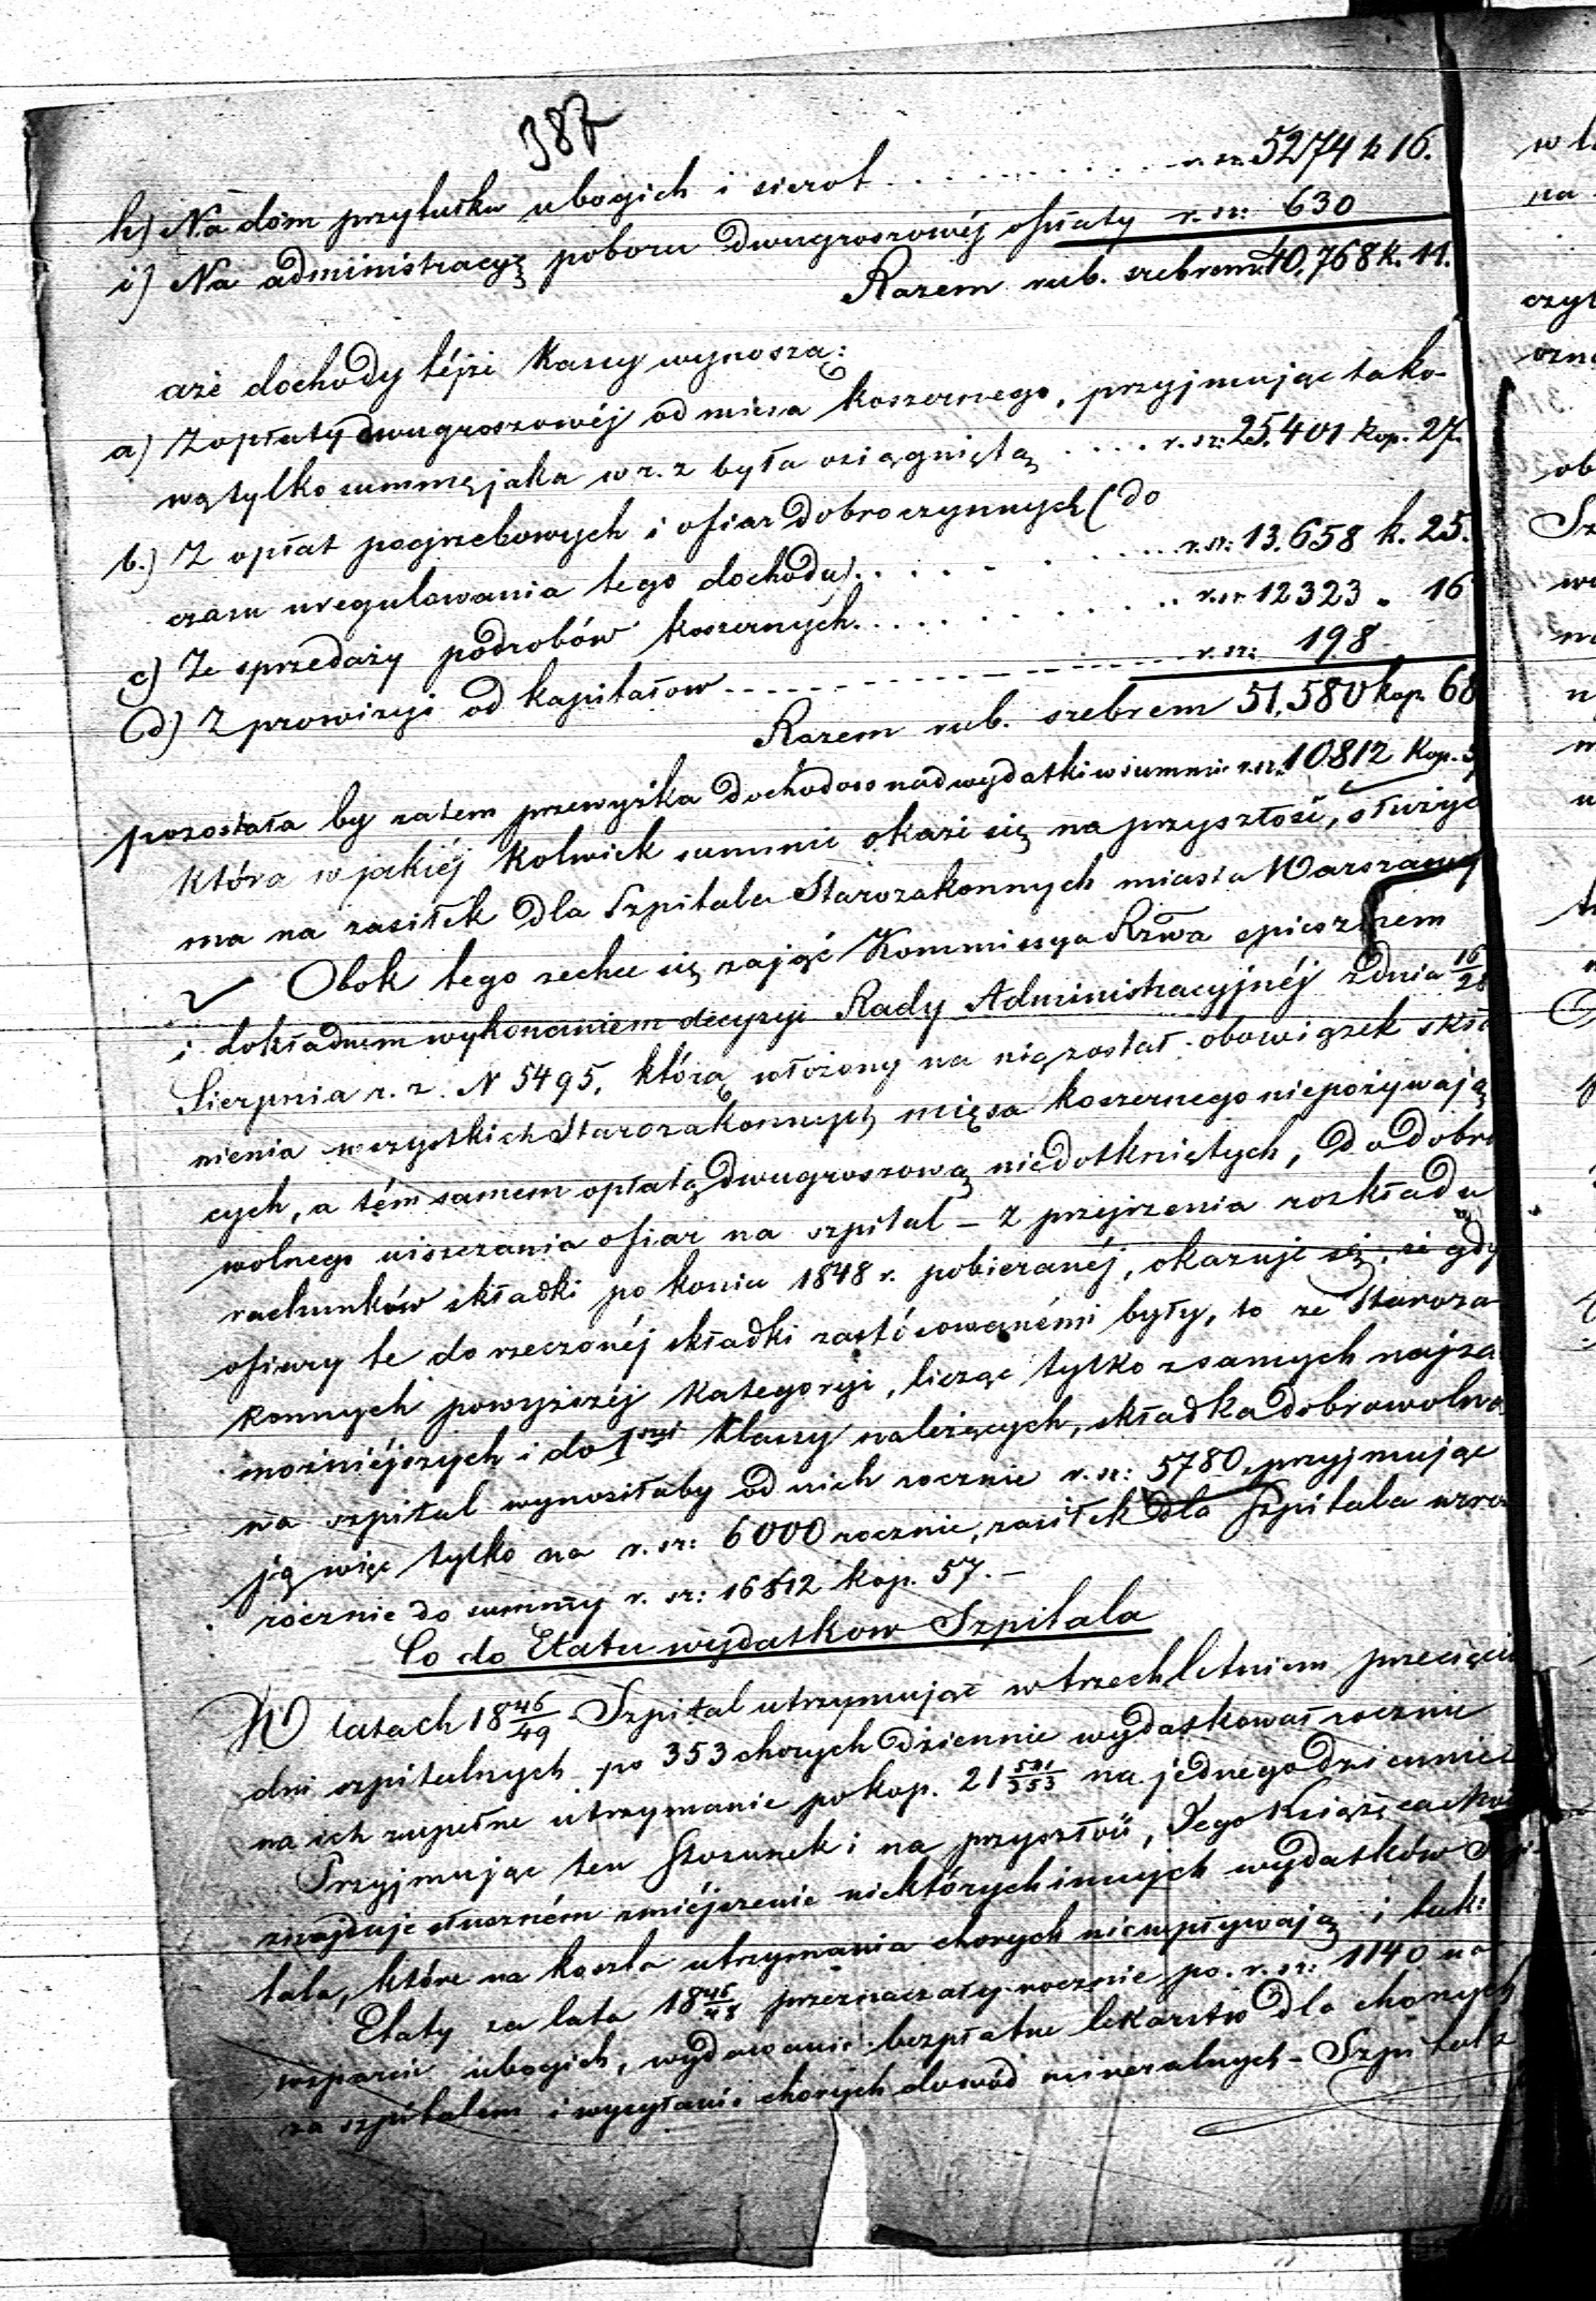 387
h) Na dom przytułku ubogich i sierot . . . . . . . . r. sr. 5274 k 16.
i) Na administracyę poboru dwugroszowéj opłaty r. sr: 630
Razem rub. srebrem 40,768 k. 11.
aże dochody téjże Kassy wynoszą:
a) Z opłaty dwugroszowéj od miesa koszernego, przyjmując tako-
wą tylko summę jaka w r. z była osiągniętą . . . . r. sr: 25,401 kop. 27.
b.) Z opłat pogrzebowych i ofiar dobroczynnych (do
czasu uregulowania tego dochodu) . . . . . . . r. sr: 13.658 k. 25.
c) Ze sprzedaży podrobów koszernych . . . . . . . . r. sr 12323 „ 16
d) Z prowizyi od kapitałow . . . . . . . . r. sr: 198
Razem rub. srebrem 51,580 kop. 68
pozostała by zatem przewyżka dochodow nad wydatki w summie r. sr. 10812 Kop. 5
która w jakiéj kolwiek summie okaże się na przyszłość, służyć
ma na zasiłek dla Szpitala Starozakonnych miasta Warszawy
Obok tego zechce się zająć Kommissya Rzwa spiesznem
i dokładnem wykonaniem decyzyi Rady Administracyjnéj z dnia 16/28
Sierpnia r. z. N 5495, którą włożony na nią został obowiązek skło
nienia wszystkich Starozakonnych mięsa koszernego niepożywają
cych, a tém samem opłatą dwugroszową niedotkniętych, do dobro
wolnego uiszczania ofiar na szpital – z przejrzenia rozkładu
rachunków składki po koniec 1848 r. pobieranéj, okazuje się, że gdy
ofiary te do rzeczonéj składki zastósowanémi były, to ze Staroza
konnych powyższéj kategoryi, licząc tylko z samych najza
możniéjszych i do 1széj klassy należących, składka dobrowolna
na szpital wynosiłaby od nich rocznie r. sr: 5780, przyjmując
ją więc tylko na r. sr: 6000 rocznie, zasiłek dla Szpitala wzro
rocznie do summy r. sr: 16812 kop. 57. –
Co do Etatu wydatkow Szpitala
W latach 18 46/49 Szpital utrzymując w trzechletniem przecięciu
dni szpitalnych po 353 chorych dziennie wydatkował rocznie
na ich zupełne utrzymanie po kop. 21 na jednego dziennie
Przyjmując ten stosunek i na przyszłość, Jego Książęca Mość
znajduje słuszném zmiéjszenie niektórych innych wydatków Szpi-
tala, które na koszta utrzymania chorych niewpływają i tak:
Etaty za lata 18 46/48 przeznaczały rocznie po r. sr: 1140 na
wsparcie ubogich, wydawanie bezpłatne lekarstw dla chorych
za szpitalem i wysyłanie chorych do wód mineralnych – Szpital z